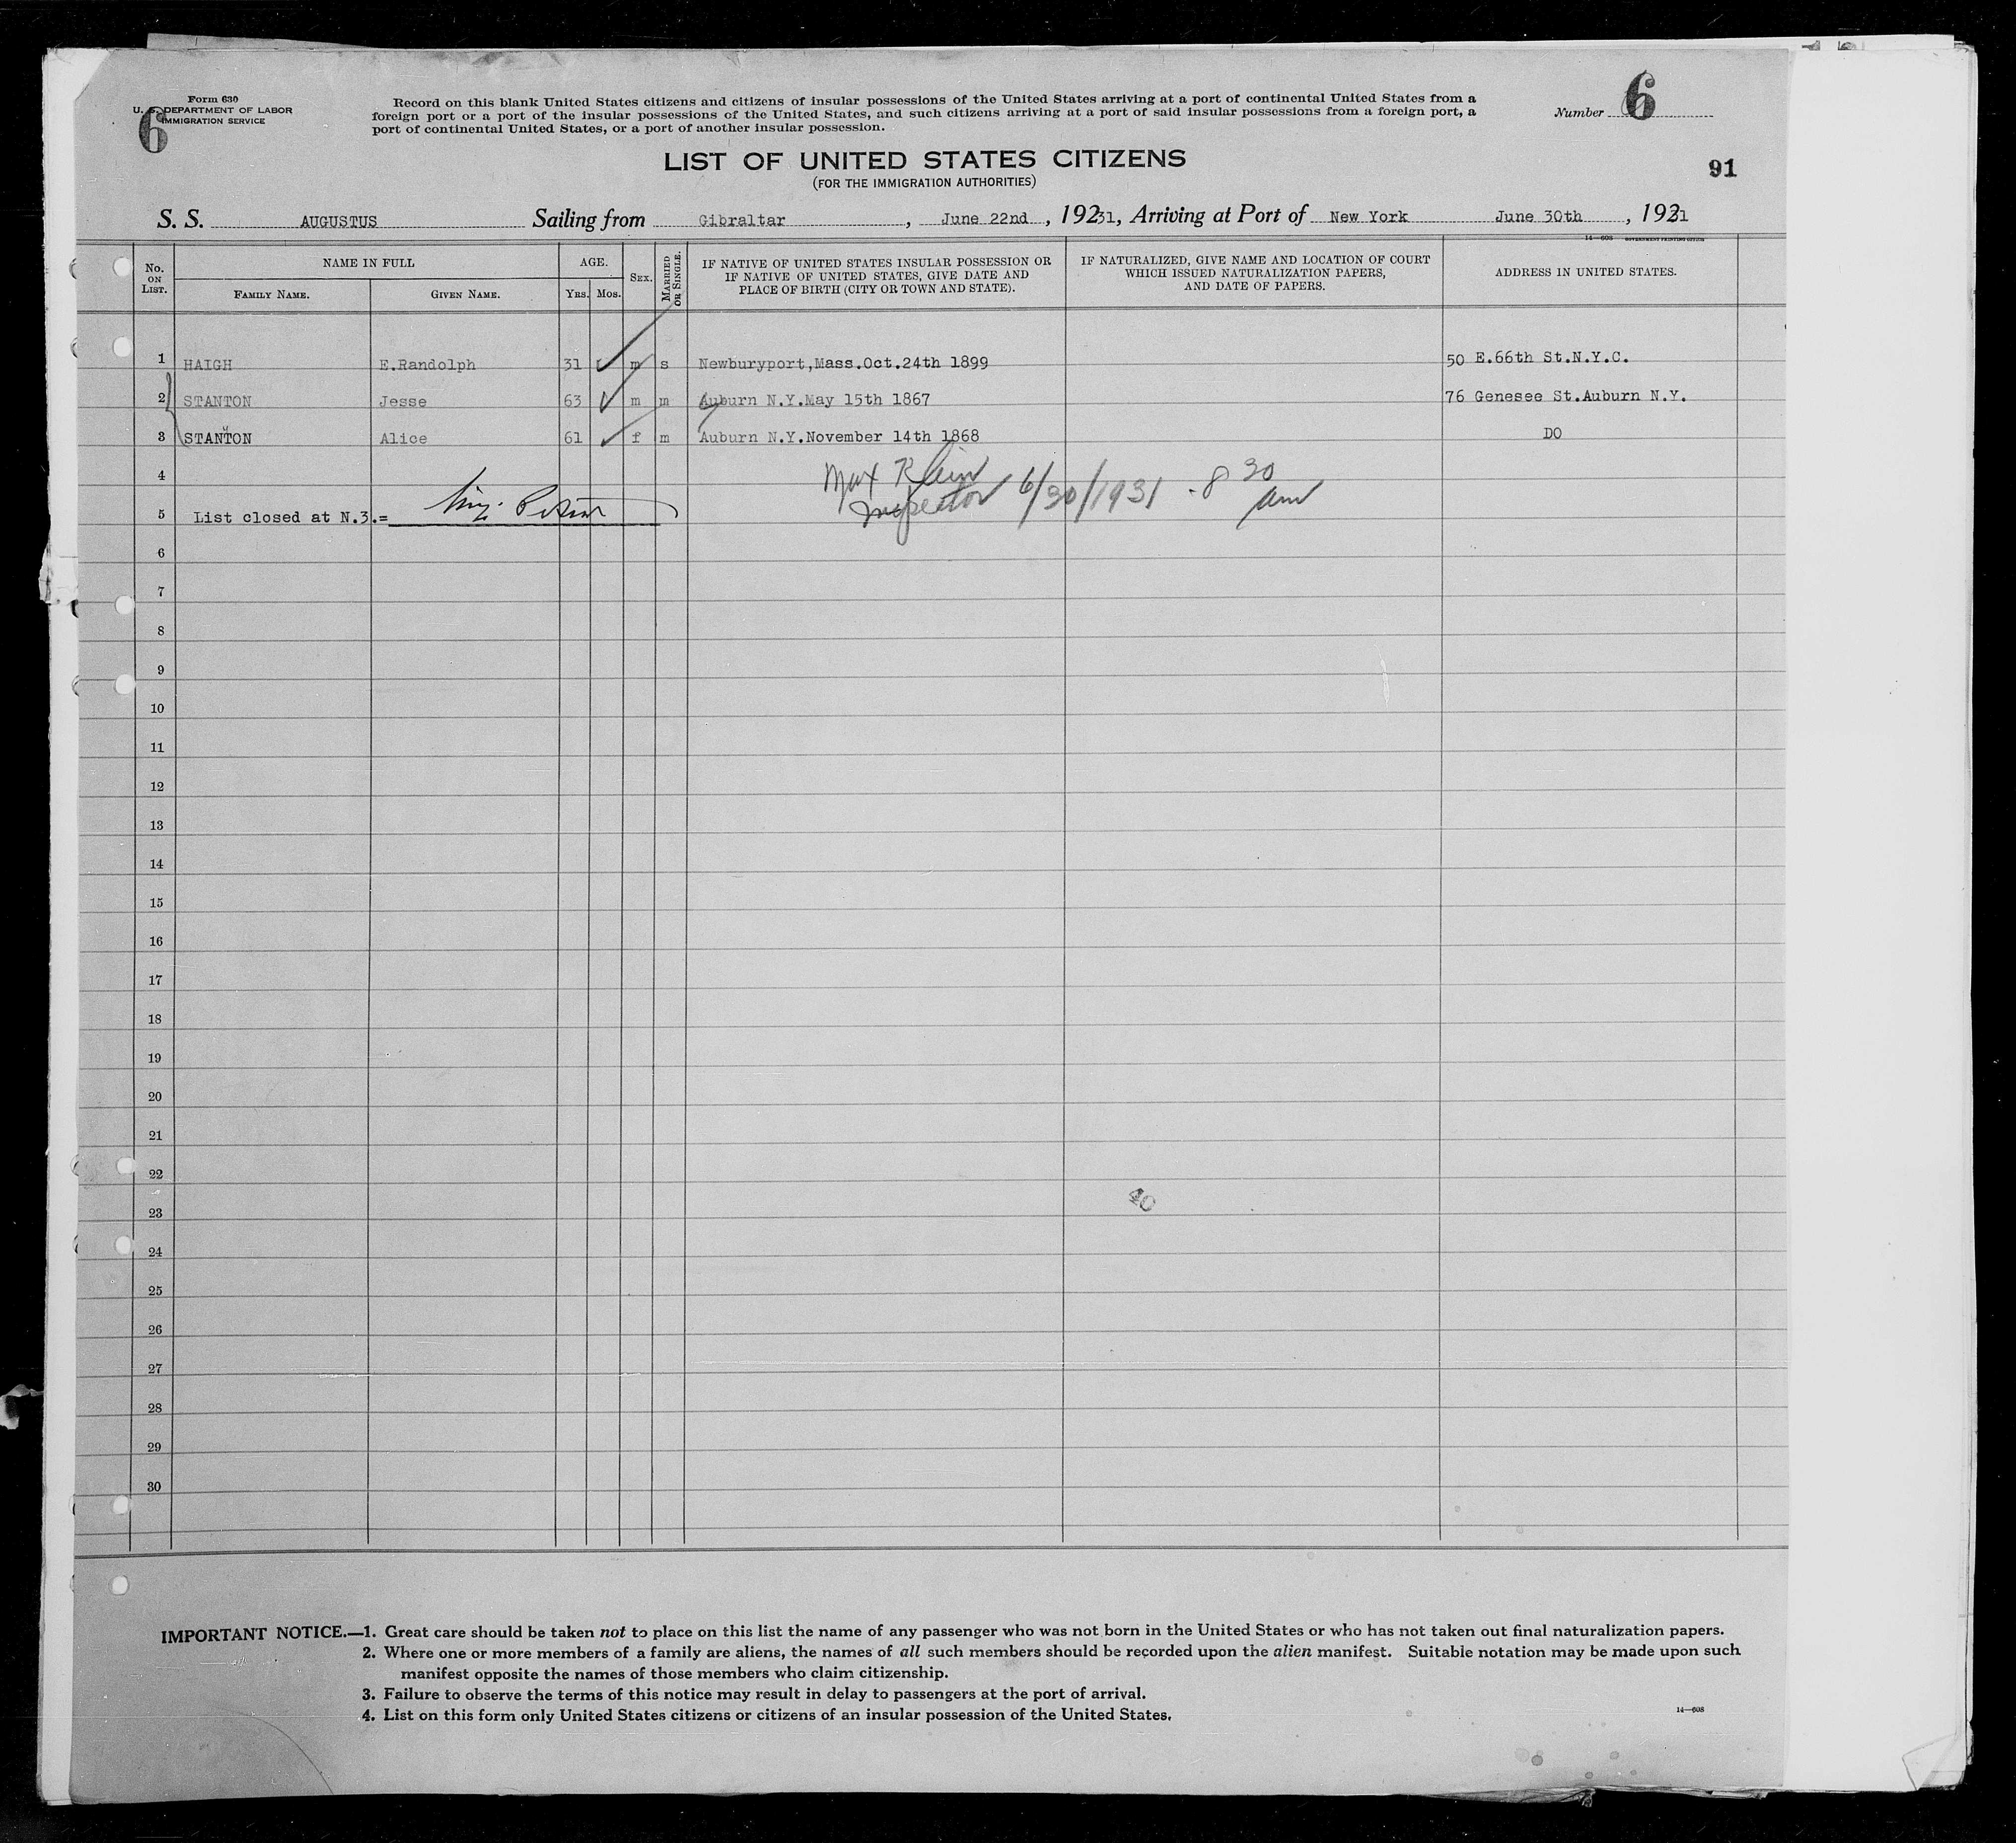 Form 630
U. S. DEPARTMENT OF LABOR
IMMIGRATION SERVICE
6
Record on this blank United States citizens and citizens of insular possessions of the United States arriving at a port of continental United States from a
foreign port or a port of the insular possessions of the United States, and such citizens arriving at a port of said insular possessions from a foreign port, a
port of continental United States, or a port of another insular possession.
Number 6
LIST OF UNITED STATES CITIZENS
(FOR THE IMMIGRATION AUTHORITIES)
91
S. S. AUGUSTUS Sailing from Gibraltar, June 22nd, 19231, Arriving at Port of New York June 30th, 1931
14—608 GOVERNMENT PRINTING OFFICE
No. ON LIST. NAME IN FULL AGE. SEX. MARRIED OR SINGLE. IF NATIVE OF UNITED STATES INSULAR POSSESSION OR IF NATIVE OF UNITED STATES, GIVE DATE AND PLACE OF BIRTH (CITY OR TOWN AND STATE). IF NATURALIZED, GIVE NAME AND LOCATION OF COURT WHICH ISSUED NATURALIZATION PAPERS, AND DATE OF PAPERS. ADDRESS IN UNITED STATES.
FAMILY NAME. GIVEN NAME. YRS. MOS.
1 HAIGH E.Randolph 31 m s Newburyport,Mass.Oct.24th 1899 50 E.66th St.N.Y.C.
2 STANTON Jesse 63 m m Auburn N.Y.May 15th 1867 76 Genesee St.Auburn N.Y.
3 STANTON Alice 61 f m Auburn N.Y.November 14th 1868 DO
4 Max Klein
5 List closed at N.3.= Inspector 6/30/1931 - 8 30 am
6
7
8
9
10
11
12
13
14
15
16
17
18
19
20
21
22
40
23
24
25
26
27
28
29
30
IMPORTANT NOTICE.—1. Great care should be taken not to place on this list the name of any passenger who was not born in the United States or who has not taken out final naturalization papers.
2. Where one or more members of a family are aliens, the names of all such members should be recorded upon the alien manifest. Suitable notation may be made upon such
manifest opposite the names of those members who claim citizenship.
3. Failure to observe the terms of this notice may result in delay to passengers at the port of arrival.
4. List on this form only United States citizens or citizens of an insular possession of the United States.
14—608